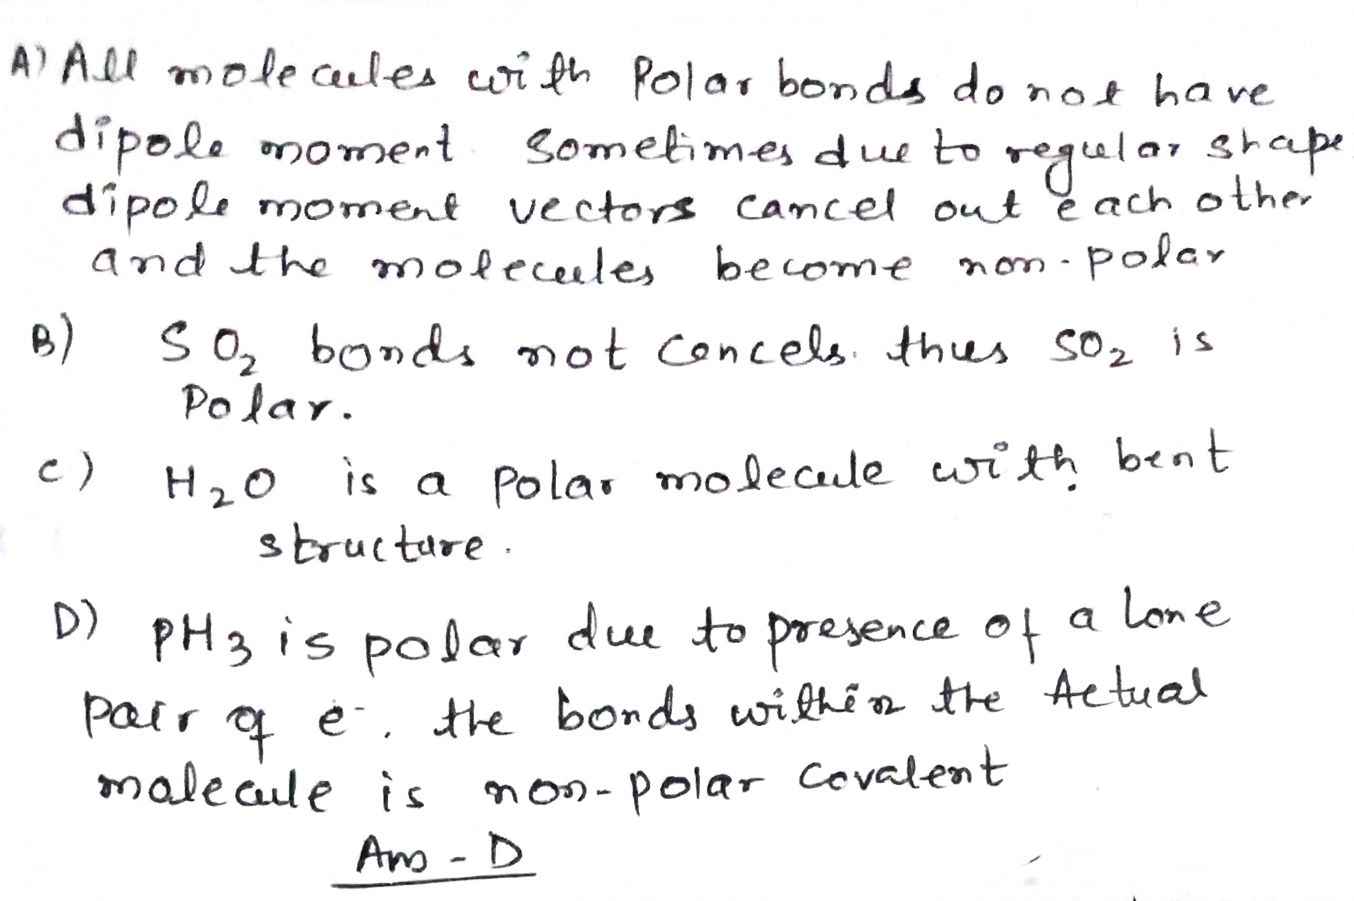 A) All molecules with Polar bonds do not have
dipole moment. Sometimes due to regular shape
dipole moment vectors cancel out each other
and the molecules become non-polar
B) SO₂ bonds not cencels. thus SO₂ is
Polar.
C) H₂O is a polar molecule with bent
structure.
D) PH3 is polar due to presence of a lone
pair of e⁻. the bonds within the Actual
malecule is non-polar covalent
Ans - D